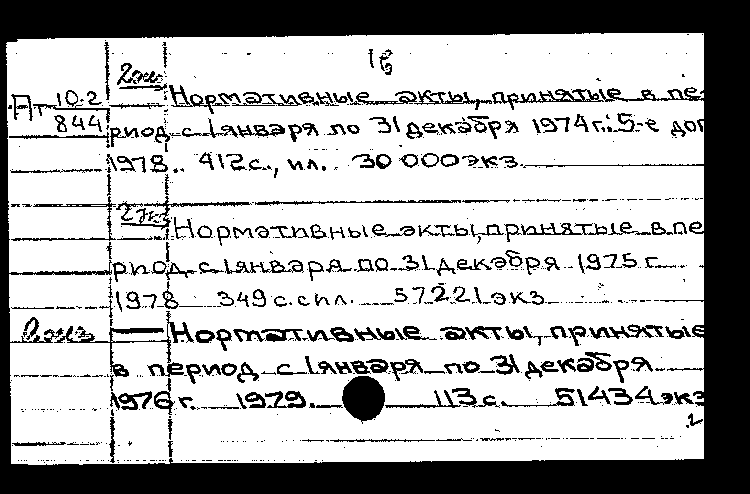 1б
2экз
Пт 10.2 Нормативные акты, принятые в пе-
844 риод с 1 января по 31 декабря 1974 г.: 5-е доп
1978.. 412 с., ил. 30 000 экз.
2 экз
Нормативные акты, принятые в пе
риод с 1 января по 31 декабря 1975 г.
1978 349 с. с ил. 57221 экз
2 экз Нормативные акты, принятые
в период с 1 января по 31 декабря
1976 г. 1979. 113 с. 51434 экз
2